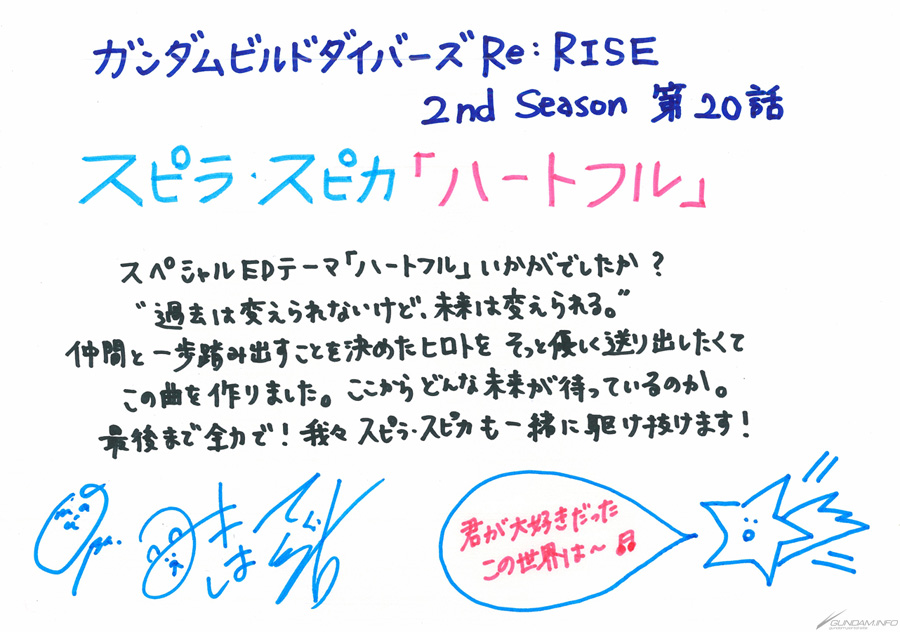 ガンダムビルドダイバーズRe:RISE
2nd Season 第20話
スピラ・スピカ「ハートフル」
スペシャルEDテーマ「ハートフル」いかがでしたか？
"過去は変えられないけど、未来は変えられる。"
仲間と一歩踏み出すことを決めたヒロトを そっと優しく送り出したくて
この曲を作りました。ここからどんな未来が待っているのか。
最後まで全力で！我々 スピラ・スピカも一緒に駆け抜けます！
君が大好きだった
この世界は〜♫
GUNDAM.INFO